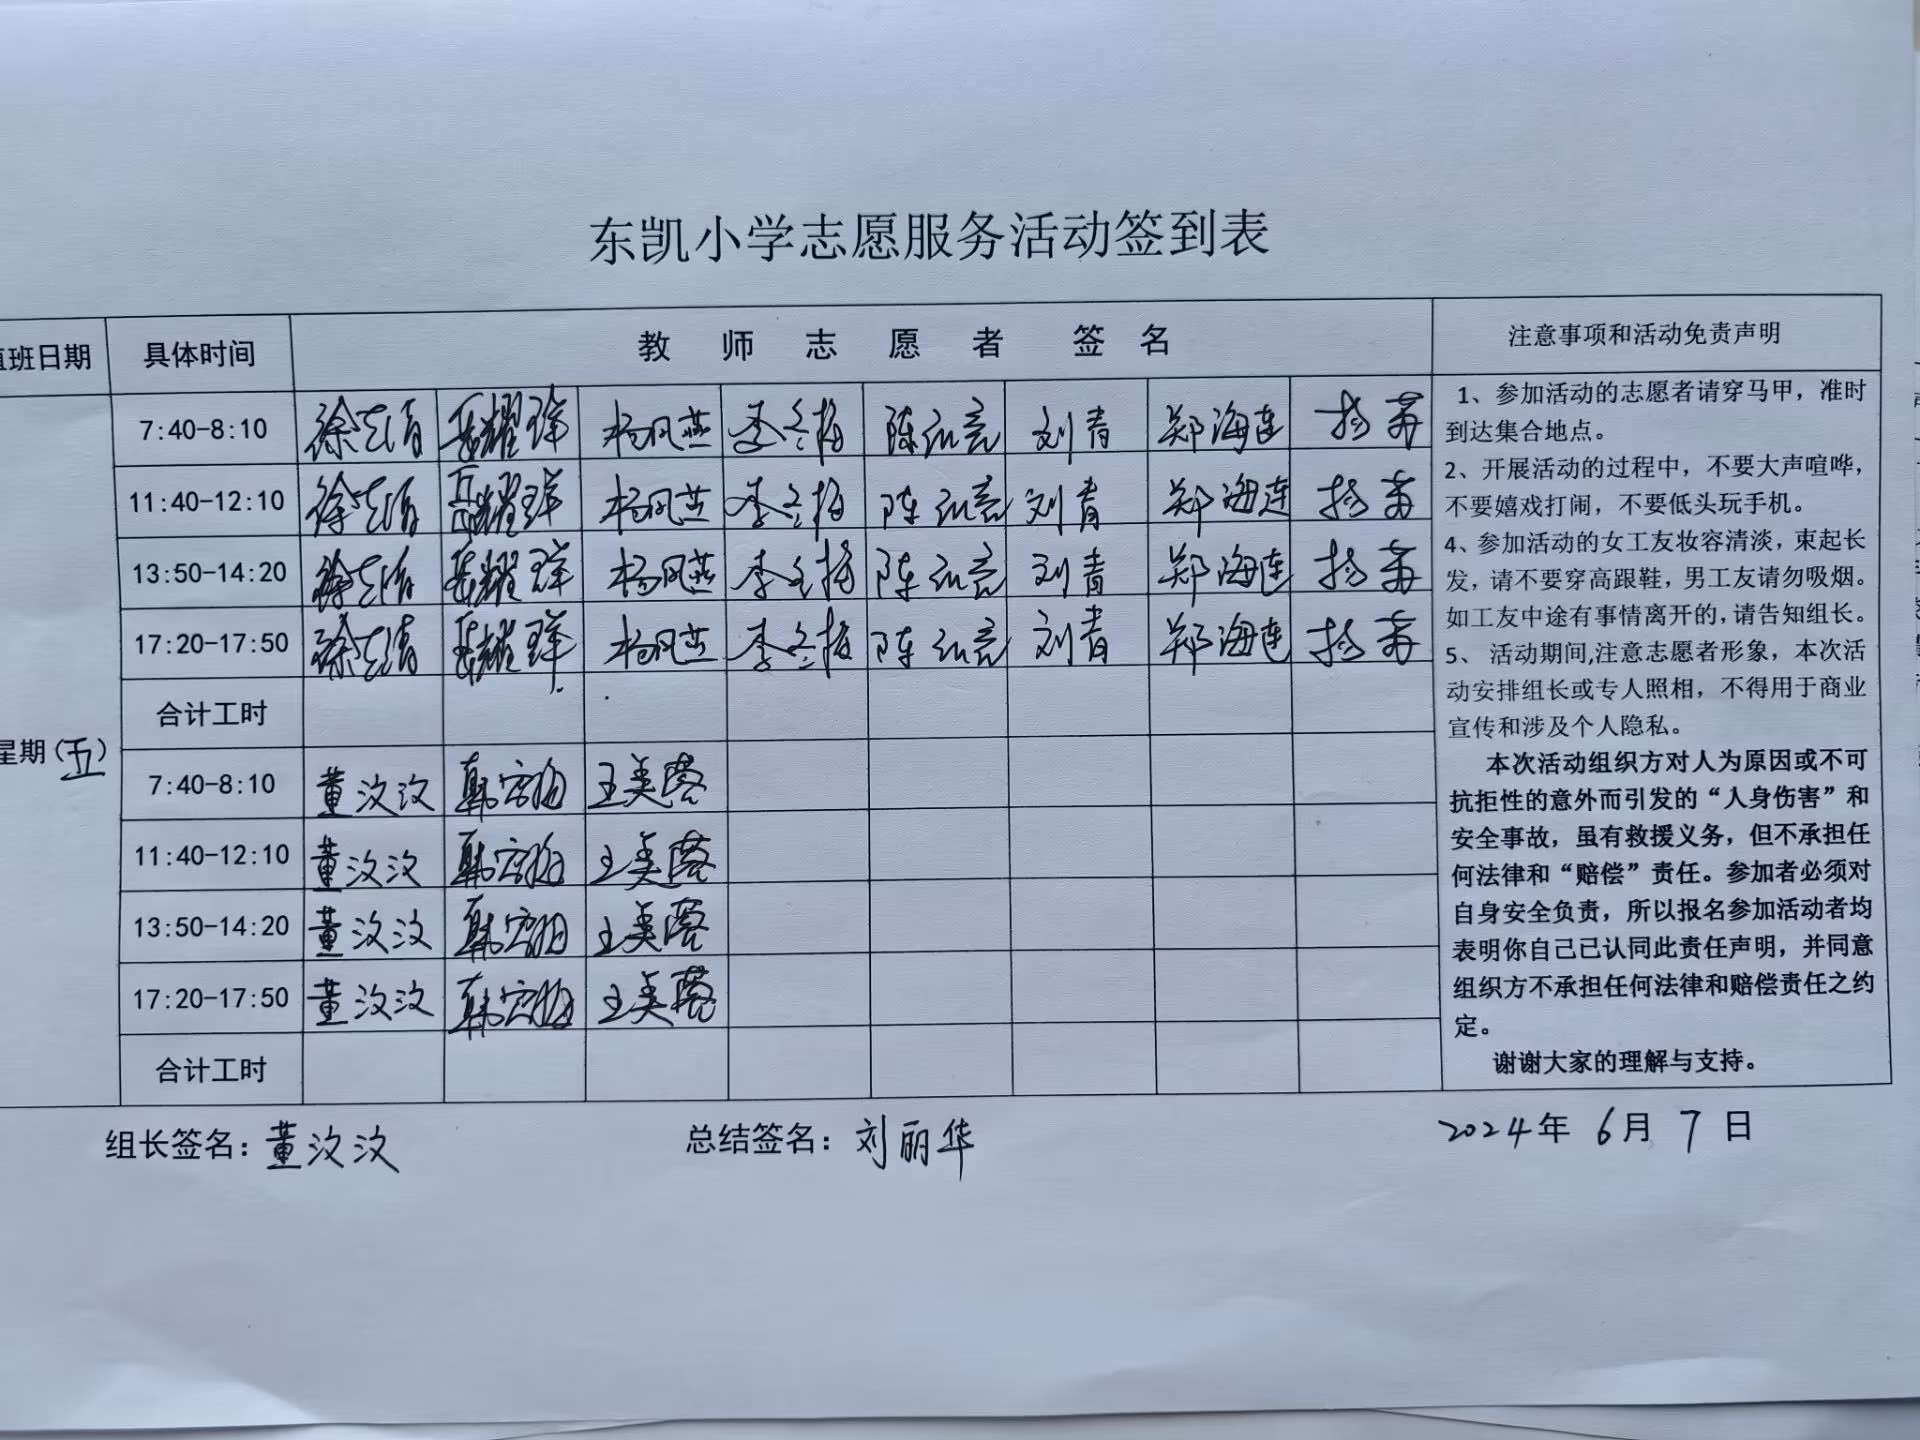 东凯小学志愿服务活动签到表
值班日期 具体时间 教师志愿者签名 注意事项和活动免责声明
7:40-8:10 杨凤燕 李冬梅 刘青 郑海连 杨苗
11:40-12:10 杨凤燕 李冬梅 刘青 郑海连 杨苗
13:50-14:20 杨凤燕 李冬梅 刘青 郑海连 杨苗
17:20-17:50 杨凤燕 李冬梅 刘青 郑海连 杨苗
合计工时
星期(五)
7:40-8:10 董汶汶 王美蓉
11:40-12:10 董汶汶 王美蓉
13:50-14:20 董汶汶 王美蓉
17:20-17:50 董汶汶 王美蓉
合计工时
1、参加活动的志愿者请穿马甲，准时
到达集合地点。
2、开展活动的过程中，不要大声喧哗，
不要嬉戏打闹，不要低头玩手机。
4、参加活动的女工友妆容清淡，束起长
发，请不要穿高跟鞋，男工友请勿吸烟。
如工友中途有事情离开的，请告知组长。
5、 活动期间,注意志愿者形象，本次活
动安排组长或专人照相，不得用于商业
宣传和涉及个人隐私。
本次活动组织方对人为原因或不可
抗拒性的意外而引发的“人身伤害”和
安全事故，虽有救援义务，但不承担任
何法律和“赔偿”责任。参加者必须对
自身安全负责，所以报名参加活动者均
表明你自己已认同此责任声明，并同意
组织方不承担任何法律和赔偿责任之约
定。
谢谢大家的理解与支持。
组长签名：董汶汶 总结签名：刘丽华 2024年 6月 7日